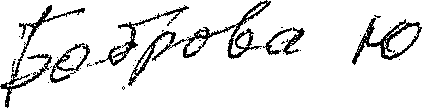 Боброва Ю